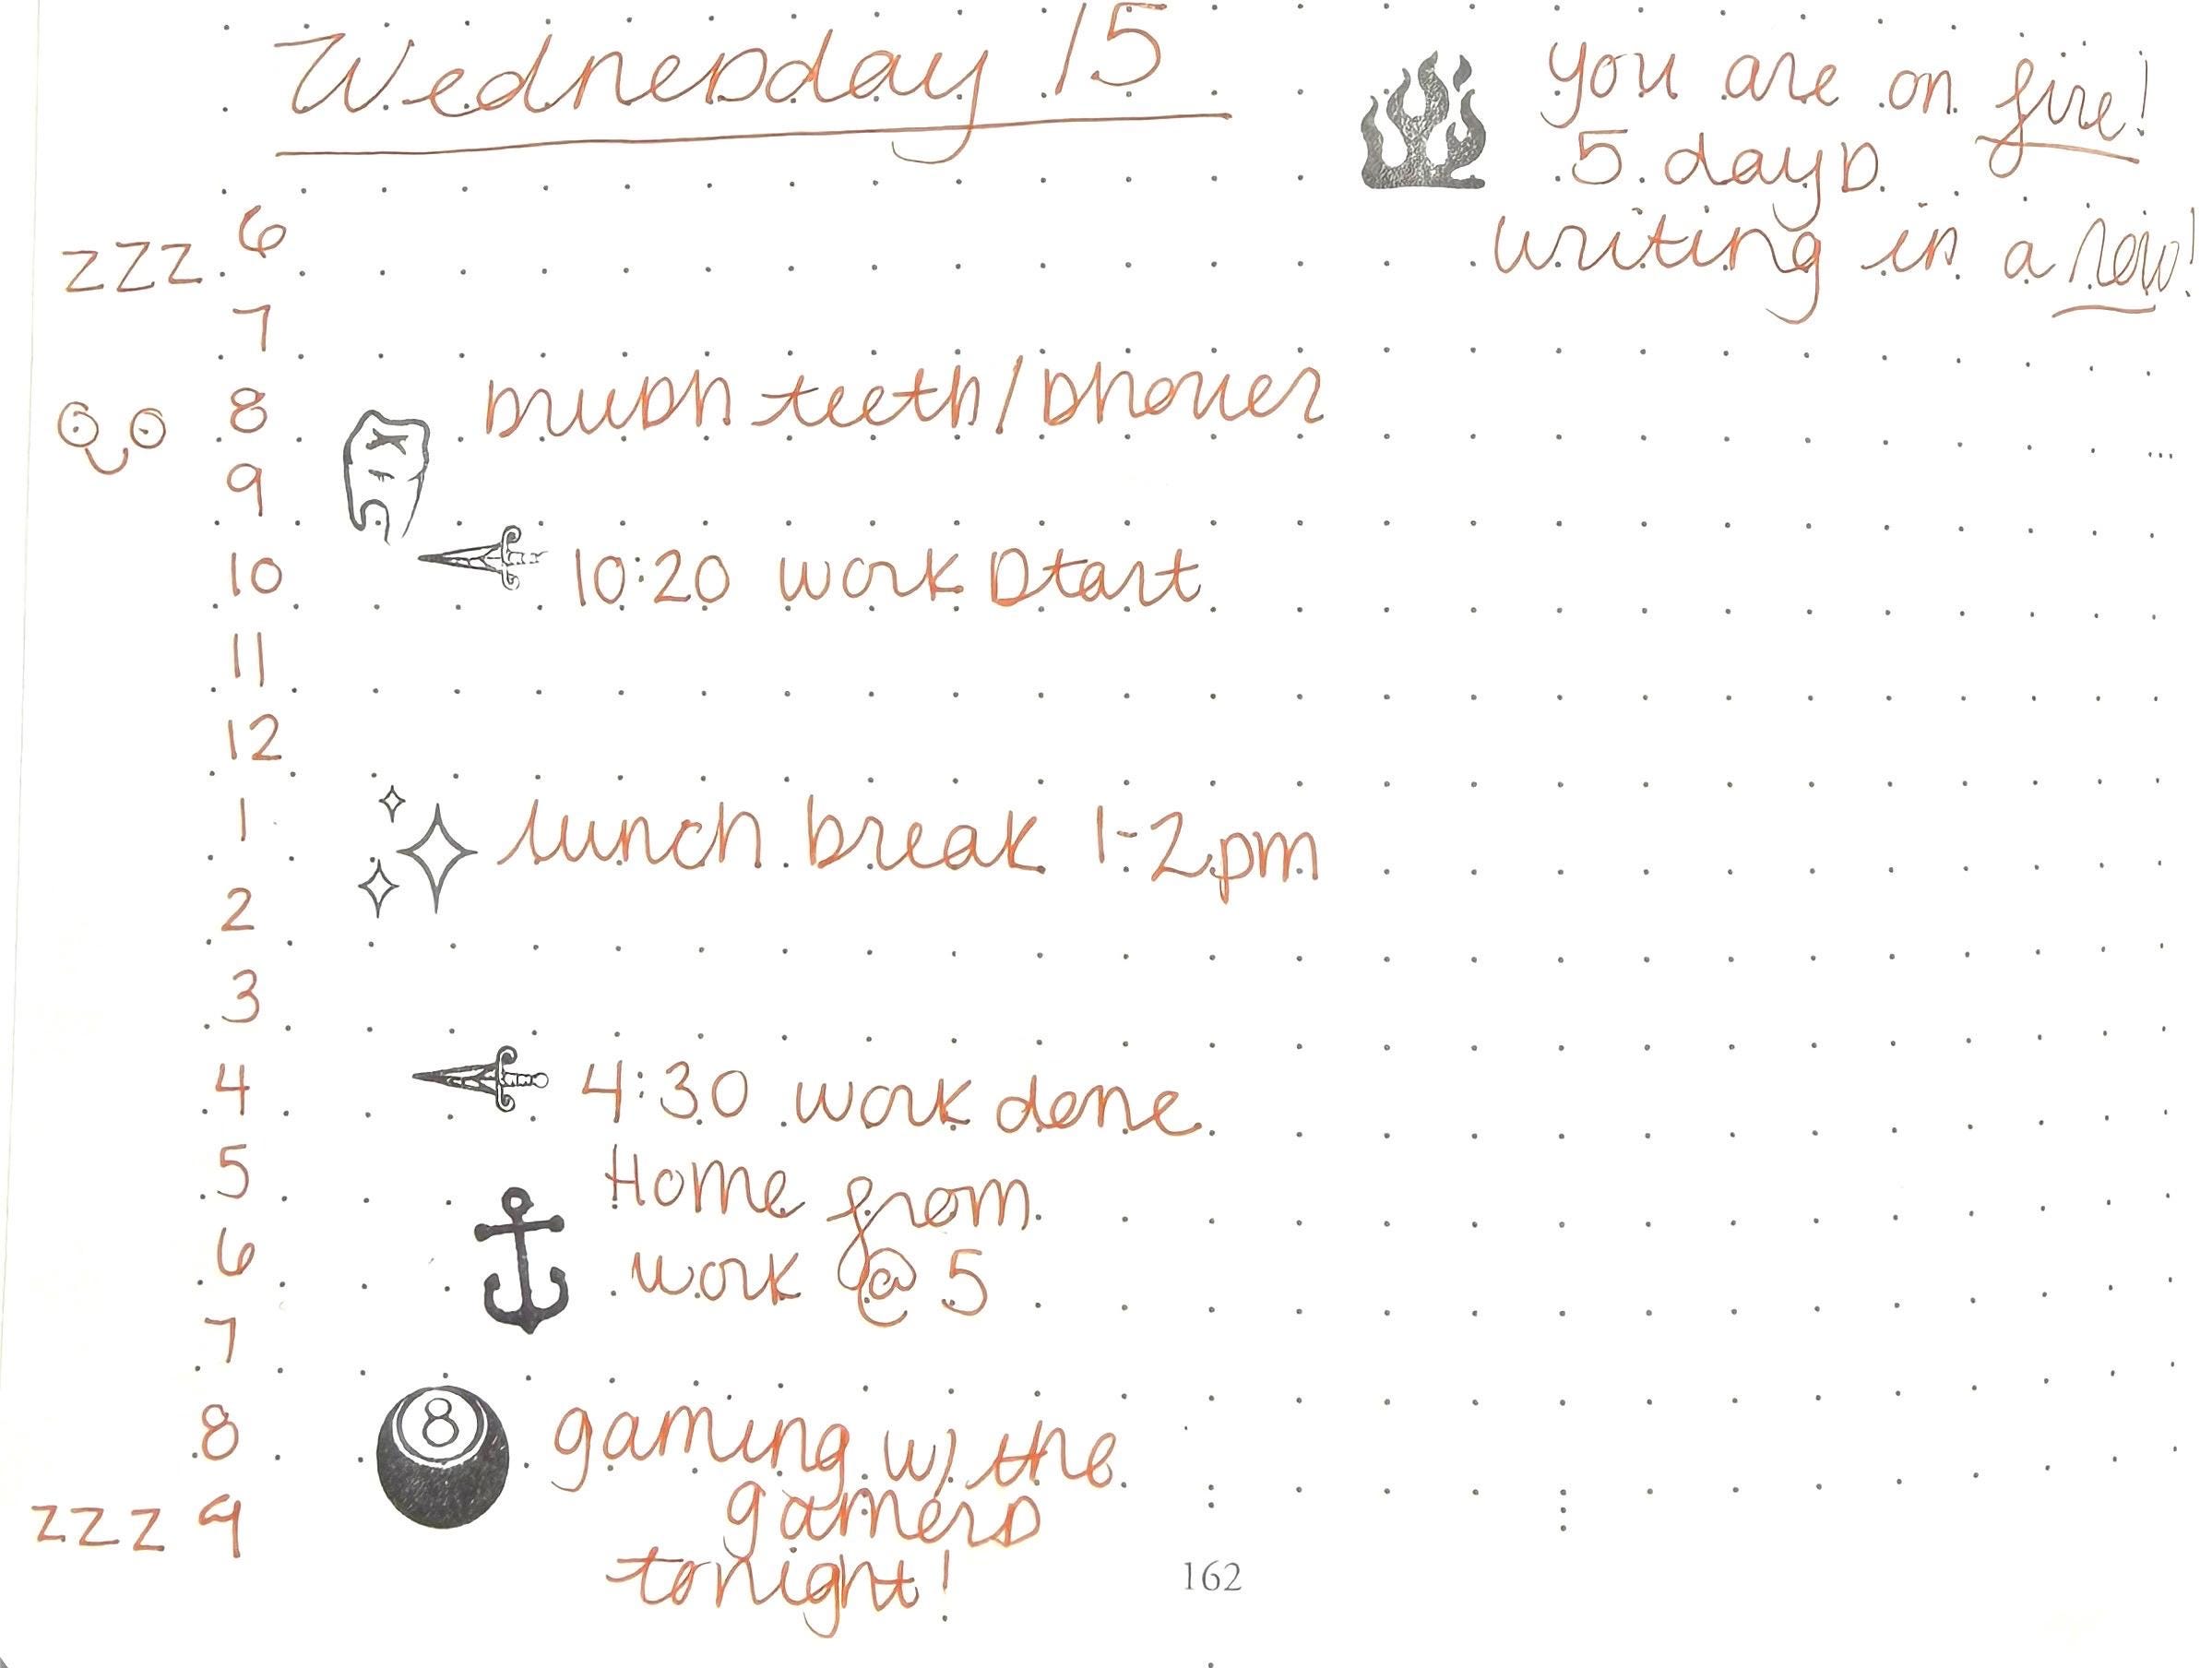 Wednesday 15
you are on fire!
5 days
writing in a row!
zzz 6
7
8 brush teeth/shower
9
10 10:20 work start
11
12
1 lunch break 1-2pm
2
3
4 4:30 work done
5 Home from
6 work @ 5
7
8 8 gaming w/ the
zzz 9 gamers
tonight!
162